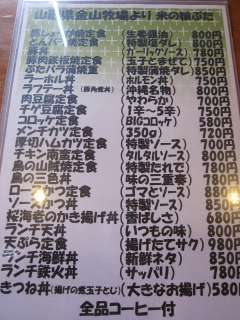 山形県金山牧場より 米の娘ぶた
豚しょうが焼定食 (生姜醤油) 800円
とんバラ焼定食 (特製塩ダレ) 800円
定食 (ガーリックソース) 800円
豚肉鉄板焼定食 玉子とまぜて) 750円
ぶたバラ蒲焼重 (特製蒲焼ダレ) 750円
ラーポル丼 (ホルモン丼) 750円
ラフテー丼 (豚角煮丼) (沖縄名物) 800円
肉豆腐定食 (やわらか) 700円
チゲ豆腐定食 (1辛〜5辛) 750円
コロッケ定食 (BIGコロッケ) 580円
メンチカツ定食 (350g) 720円
厚切ハムカツ定食 (特製ソース) 700円
チキン南蛮定食 (タルタルソース) 800円
鳥の山賊焼定食 (特製ソース) 780円
鳥の三色丼 (味の三重奏) 780円
ロースかつ定食 (ゴマとソース) 780円
ソースかつ丼 (特製ソース) 850円
桜海老のかき揚げ丼 (香ばしさ) 680円
ランチ天丼 (いつもの味) 800円
天ぷら定食 (揚げたてサク) 980円
ランチ海鮮丼 (新鮮ネタ) 850円
ランチ鉄火丼 (サッパリ) 780円
きつね丼 (揚げの煮玉子とじ) (大きなお揚げ) 580円
全品コーヒー付